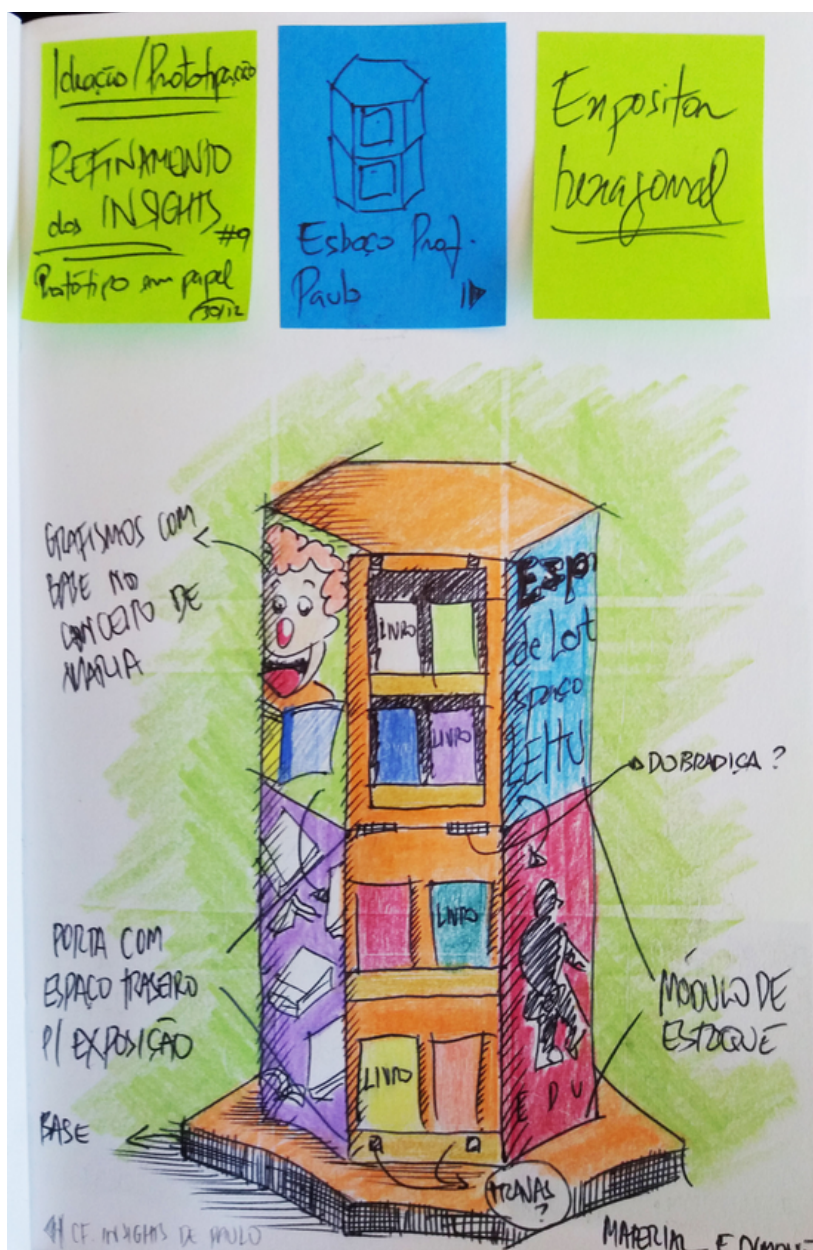 Ideação/Prototipação
REFINAMENTO
dos INSIGHTS
#9
Protótipo em papel
30/12
Esboço Prof.
Paulo
Expositor
hexagonal
GRAFISMOS COM
BASE NO
CONCEITO DE
MARIA
LIVRO
LIVRO
Esp
de Lot
LEITU
DOBRADIÇA?
LIVRO
PORTA COM
ESPAÇO TRASEIRO
P/ EXPOSIÇÃO
MÓDULO DE
ESTOQUE
LIVRO
EDU
BASE
TRAVAS
?
CF. INSIGHTS DE PAULO
MATERIAL